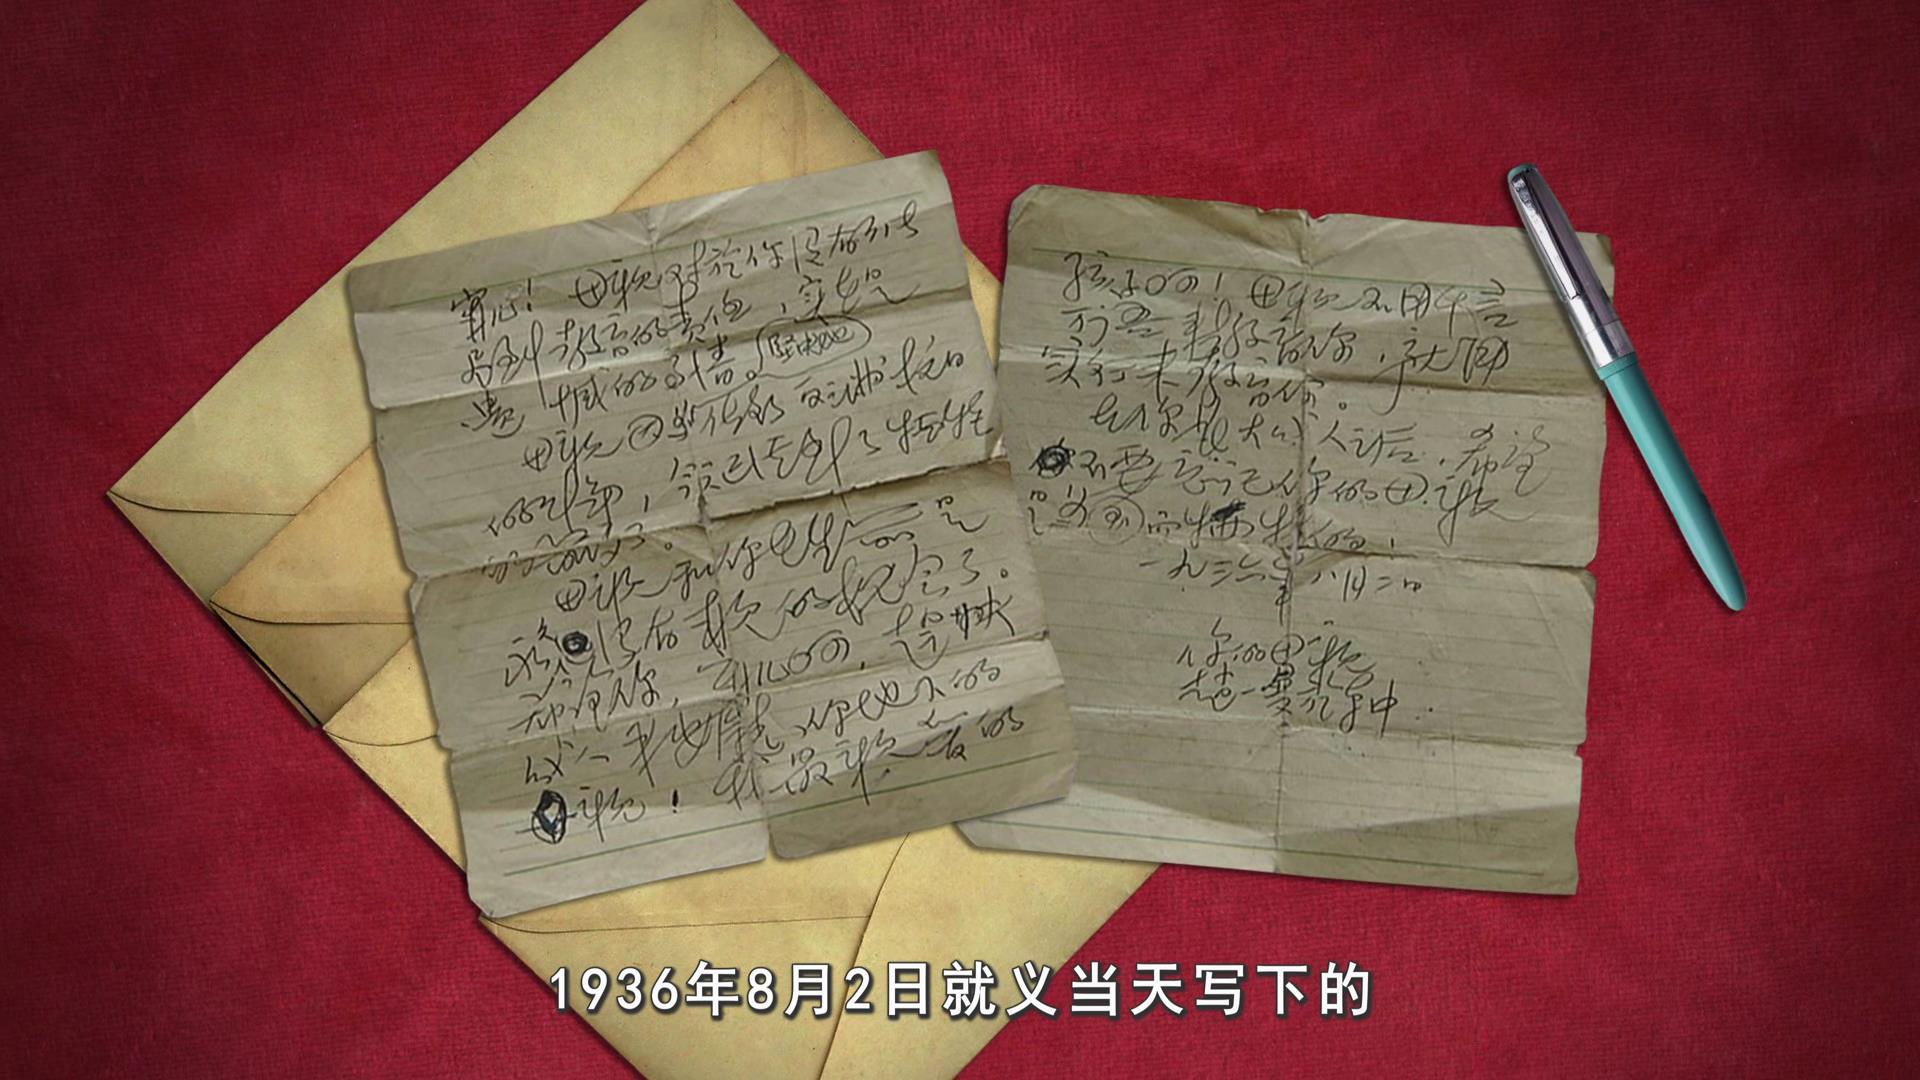 宁儿！母親对於你没有能尽
到教育的责任，实在是
遗憾的事情。
母親因为坚决地做了反满抗日
的斗争，今天已经到了牺牲
的前夕了。
母親和你在生前是
永久没有再見的机会了。
希望你，宁儿啊！赶快
成人，来安慰你地下的
母親！我最親爱的
孩子啊！母親不用千言
万语来教育你，就用
实行来教育你。
在你長大成人之后，希望
不要忘记你的母親
是为国而牺牲的！
一九三六年八月二日
你的母親
赵一曼于車中
1936年8月2日就义当天写下的